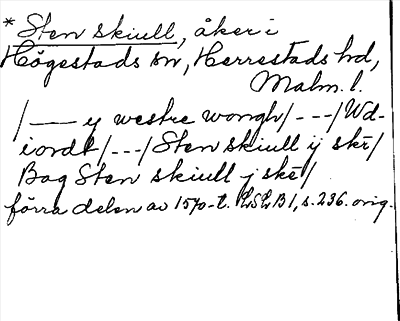 * Sten skiull, åker i
Högestads sn, Herrestads hd,
Malm. l.
/— y westre wongh/---/Wd-
iordt/---/Sten skiull ij skē/
Bag Sten skiull j skē/
förra delen av 1570-t. LSLB1, s. 236. orig.